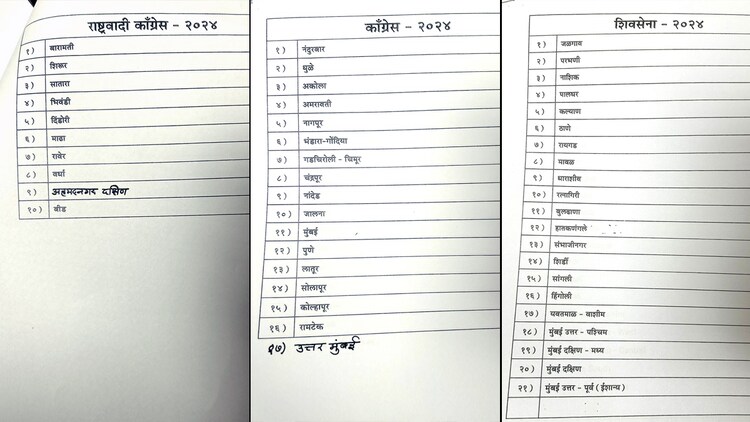 राष्ट्रवादी काँग्रेस - २०२४
१) बारामती
२) शिरूर
३) सातारा
४) भिवंडी
५) दिंडोरी
६) माढा
७) रावेर
८) वर्धा
९) अहमदनगर दक्षिण
१०) बीड
काँग्रेस - २०२४
१) नंदुरबार
२) धुळे
३) अकोला
४) अमरावती
५) नागपूर
६) भंडारा-गोंदिया
७) गडचिरोली - चिमूर
८) चंद्रपूर
९) नांदेड
१०) जालना
११) मुंबई
१२) पुणे
१३) लातूर
१४) सोलापूर
१५) कोल्हापूर
१६) रामटेक
१७) उत्तर मुंबई
शिवसेना - २०२४
१) जळगाव
२) परभणी
३) नाशिक
४) पालघर
५) कल्याण
६) ठाणे
७) रायगड
८) मावळ
९) धाराशीव
१०) रत्नागिरी
११) बुलढाणा
१२) हातकणंगले
१३) संभाजीनगर
१४) शिर्डी
१५) सांगली
१६) हिंगोली
१७) यवतमाळ - वाशीम
१८) मुंबई उत्तर - पश्चिम
१९) मुंबई दक्षिण - मध्य
२०) मुंबई दक्षिण
२१) मुंबई उत्तर - पूर्व (ईशान्य)